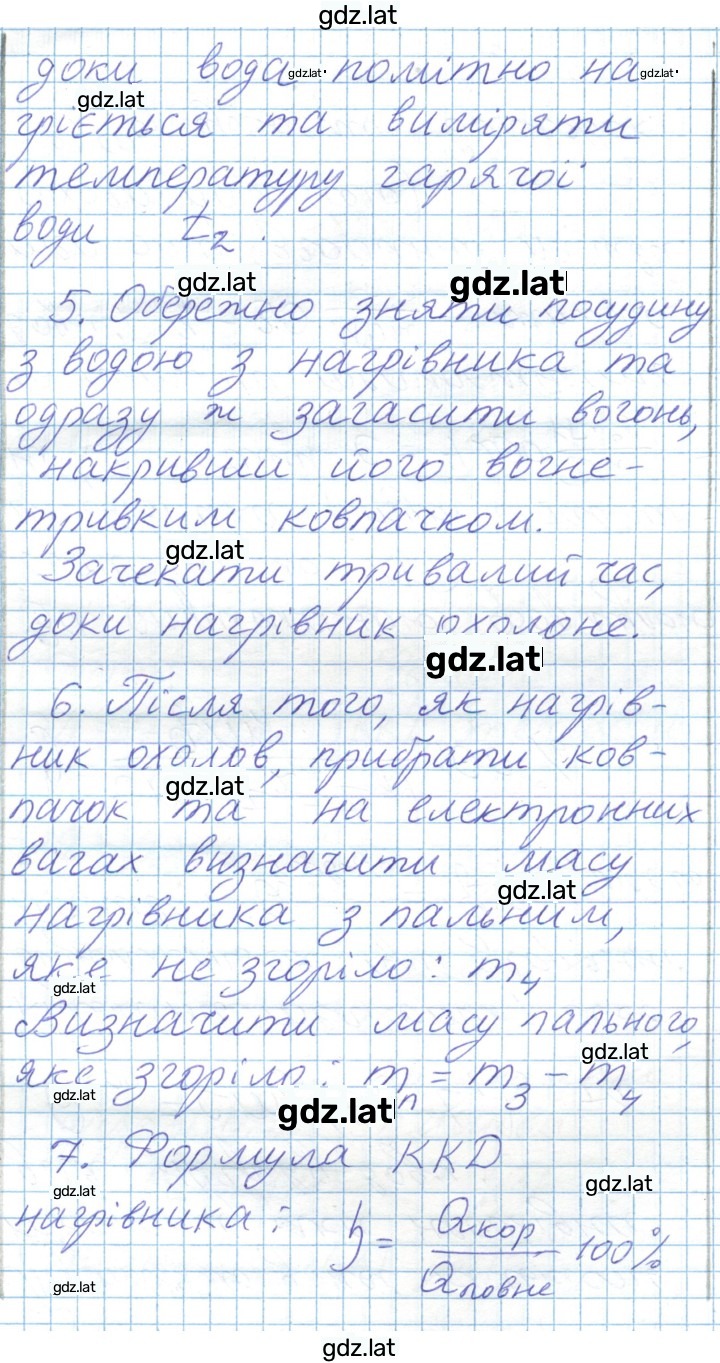 gdz.lat
доки вода gdz.lat помітно на gdz.lat
gdz.lat
гріється та виміряти
температуру гарячої
води t₂.
gdz.lat gdz.lat
5. Обережно зняти посудину
з водою з нагрівника та
одразу ж загасити вогонь,
накривши його вогне-
тривким ковпачком.
gdz.lat
Зачекати тривалий час,
доки нагрівник охолоне.
gdz.lat
6. Після того, як нагрів-
ник охолов, прибрати ков-
gdz.lat
пачок та на електронних
вагах визначити масу
gdz.lat
нагрівника з пальним,
яке не згоріло: m₄
gdz.lat
Визначити масу пального,
gdz.lat
яке згоріло: mₙ = m₃ - m₄
gdz.lat
gdz.lat
7. Формула ККД
gdz.lat gdz.lat
нагрівника: η = Qкор / Qповне 100%
gdz.lat
gdz.lat